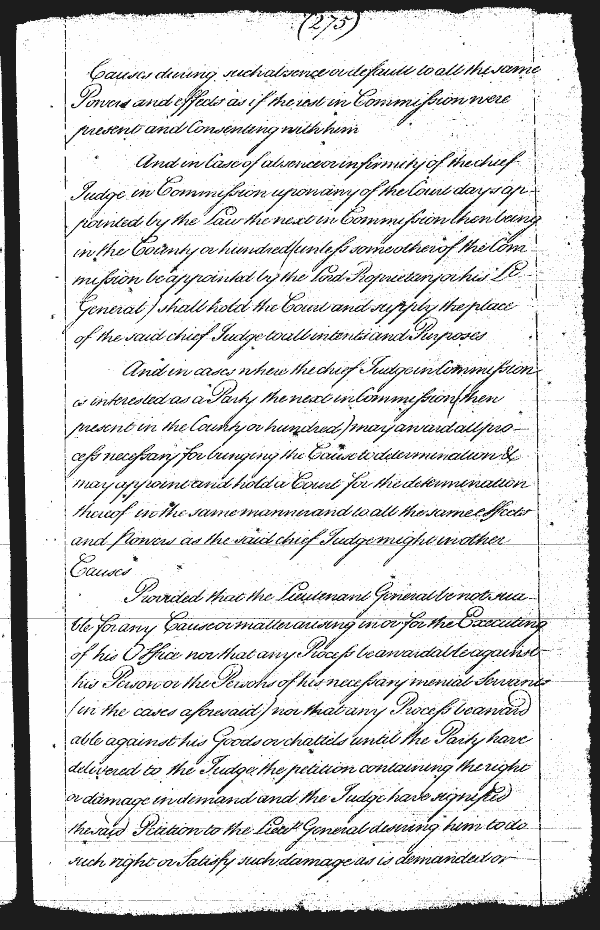 (275)
Causes during such absence or default to all the same
Powers and effects as if the rest in Commission were
present and Consenting with him
And in Case of absence or infirmity of the chief
Judge in Commission upon any of the Court days ap-
pointed by the Law the next in Commission then being
in the County or hundred (unless some other of the Com
mission be appointed by the Lord Proprietary or his Lt
General) shall hold the Court and supply the place
of the said chief Judge to all intents and Purposes
And in cases where the chief Judge in Commission
is interested as a Party the next in Commission (then
present in the County or hundred) may award all pro-
cess necessary for bringing the Cause to determination &
may appoint and hold a Court for the determination
thereof in the same manner and to all the same effects
and Powers as the said chief Judge might in other
Causes
Provided that the Lieutenant General be not sua-
ble for any Cause or matter arising in or for the Executing
of his Office nor that any Process be awardable against
his Person or the Persons of his necessary menial Servants
(in the cases aforesaid) nor that any Process be award
able against his Goods or chattels until the Party have
delivered to the Judge the petition containing the right
or damage in demand and the Judge have signified
the said Petition to the Lieutt General desiring him to do
such right or Satisfy such damage as is demanded or